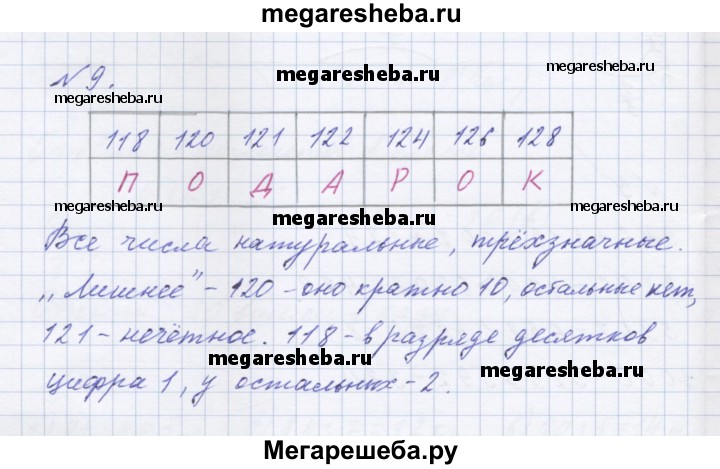 megaresheba.ru
№9.
megaresheba.ru
megaresheba.ru
megaresheba.ru
118 120 121 122 124 126 128
П О Д А Р О К
megaresheba.ru
megaresheba.ru
Все числа натуральные, трёхзначные.
„Лишнее" - 120 - оно кратно 10, остальные нет,
121 - нечётное. 118 - в разряде десятков
megaresheba.ru
megaresheba.ru
цифра 1, у остальных - 2.
Мегарешеба.ру